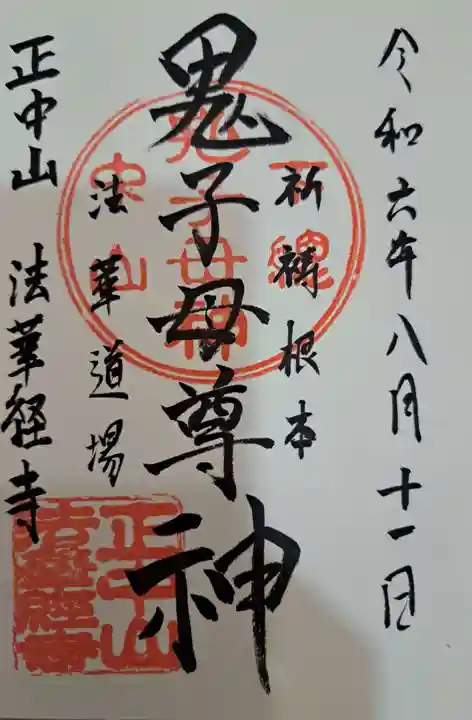 令和六年八月十一日
祈祷根本
鬼子母尊神
法華道場
正中山 法華経寺
鬼子母神
正中山
法華経寺